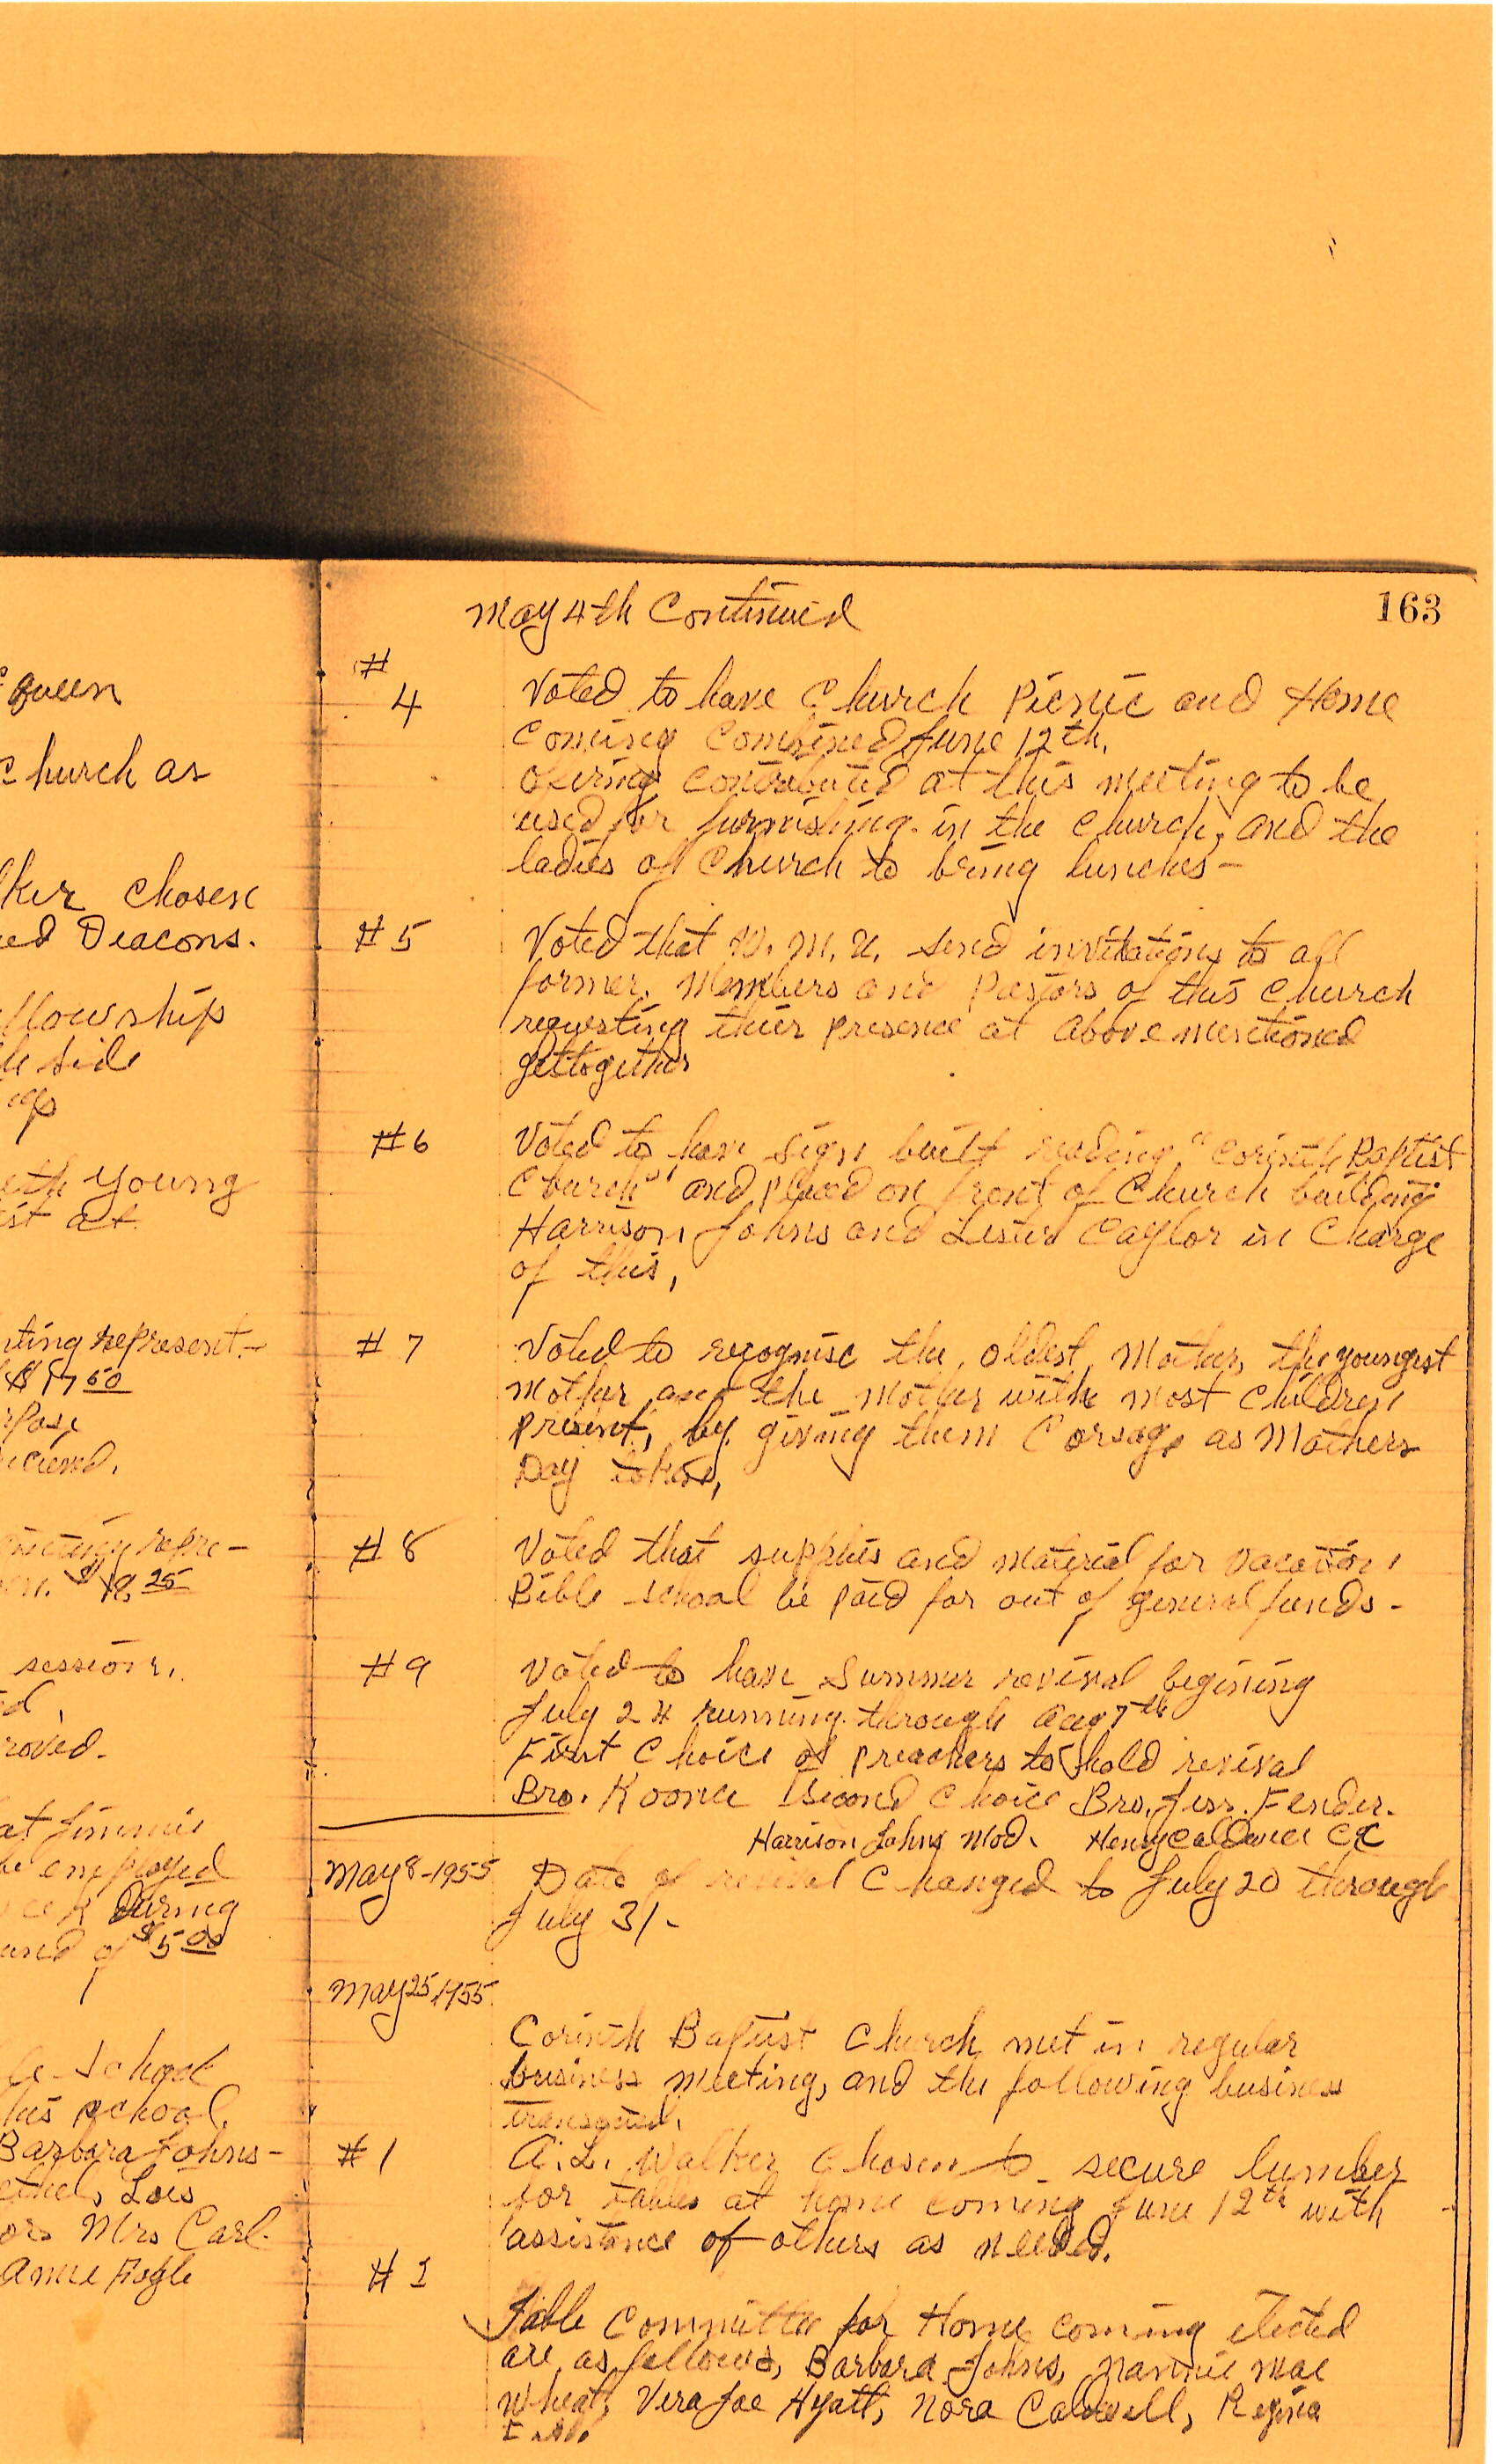 queen
church as
lker chosen
ed Deacons.
llowship
side
eth young
st at
nting represent-
$17 50
rpose
ecieved.
repre-
$18. 25
session.
ed,
roved.
at Jimmie
be employed
during
und of $5 00
school
his school.
Barbara Johns-
ethel, Lois
or Mrs Carl.
Annie Fogle
163
May 4th Continued
#
4 Voted to have Church Picnic and Home
Coming Combined June 12th.
Ofering contributed at this meeting to be
used for furnishing in the church, and the
ladies of Church to bring lunches-
#5 Voted that W. M. U. send invitations to all
former Members and Pastors of this Church
requesting thier presence at above mentioned
gettogether
#6 Voted to have sign built reading "Corinth Baptist
Church" and placed on front of Church building
Harrison Johns and Lester Caylor in Charge
of this,
#7 Voted to recognise the oldest Mother, the youngest
mother and the mother with most Children
present, by giving them Corsage as Mothers
Day token,
#8 Voted that supplies and material for vacation
Bible school be paid for out of general funds-
#9 Voted to have Summer revival begining
July 24 running through Aug 7th
First Choice of preachers to hold revival
Bro. Koonce Second Choice Bro. Jerr. Fender.
Harrison Johns Mod. Henry Caldwell CC
May 8-1955 Date of revival Changed to July 20 through
July 31-
May 25, 1955
Corinth Baptist Church met in regular
business meeting, and the following business
transacted.
#1 A. L. Walker Chosen to secure lumber
for tables at home coming June 12th with
assistance of others as needed.
#2
Table Committee for Home coming elected
are as follows, Barbara Johns, Nannie Mae
Wheat, Vera Joe Hyatt, Nora Caldwell, Regina